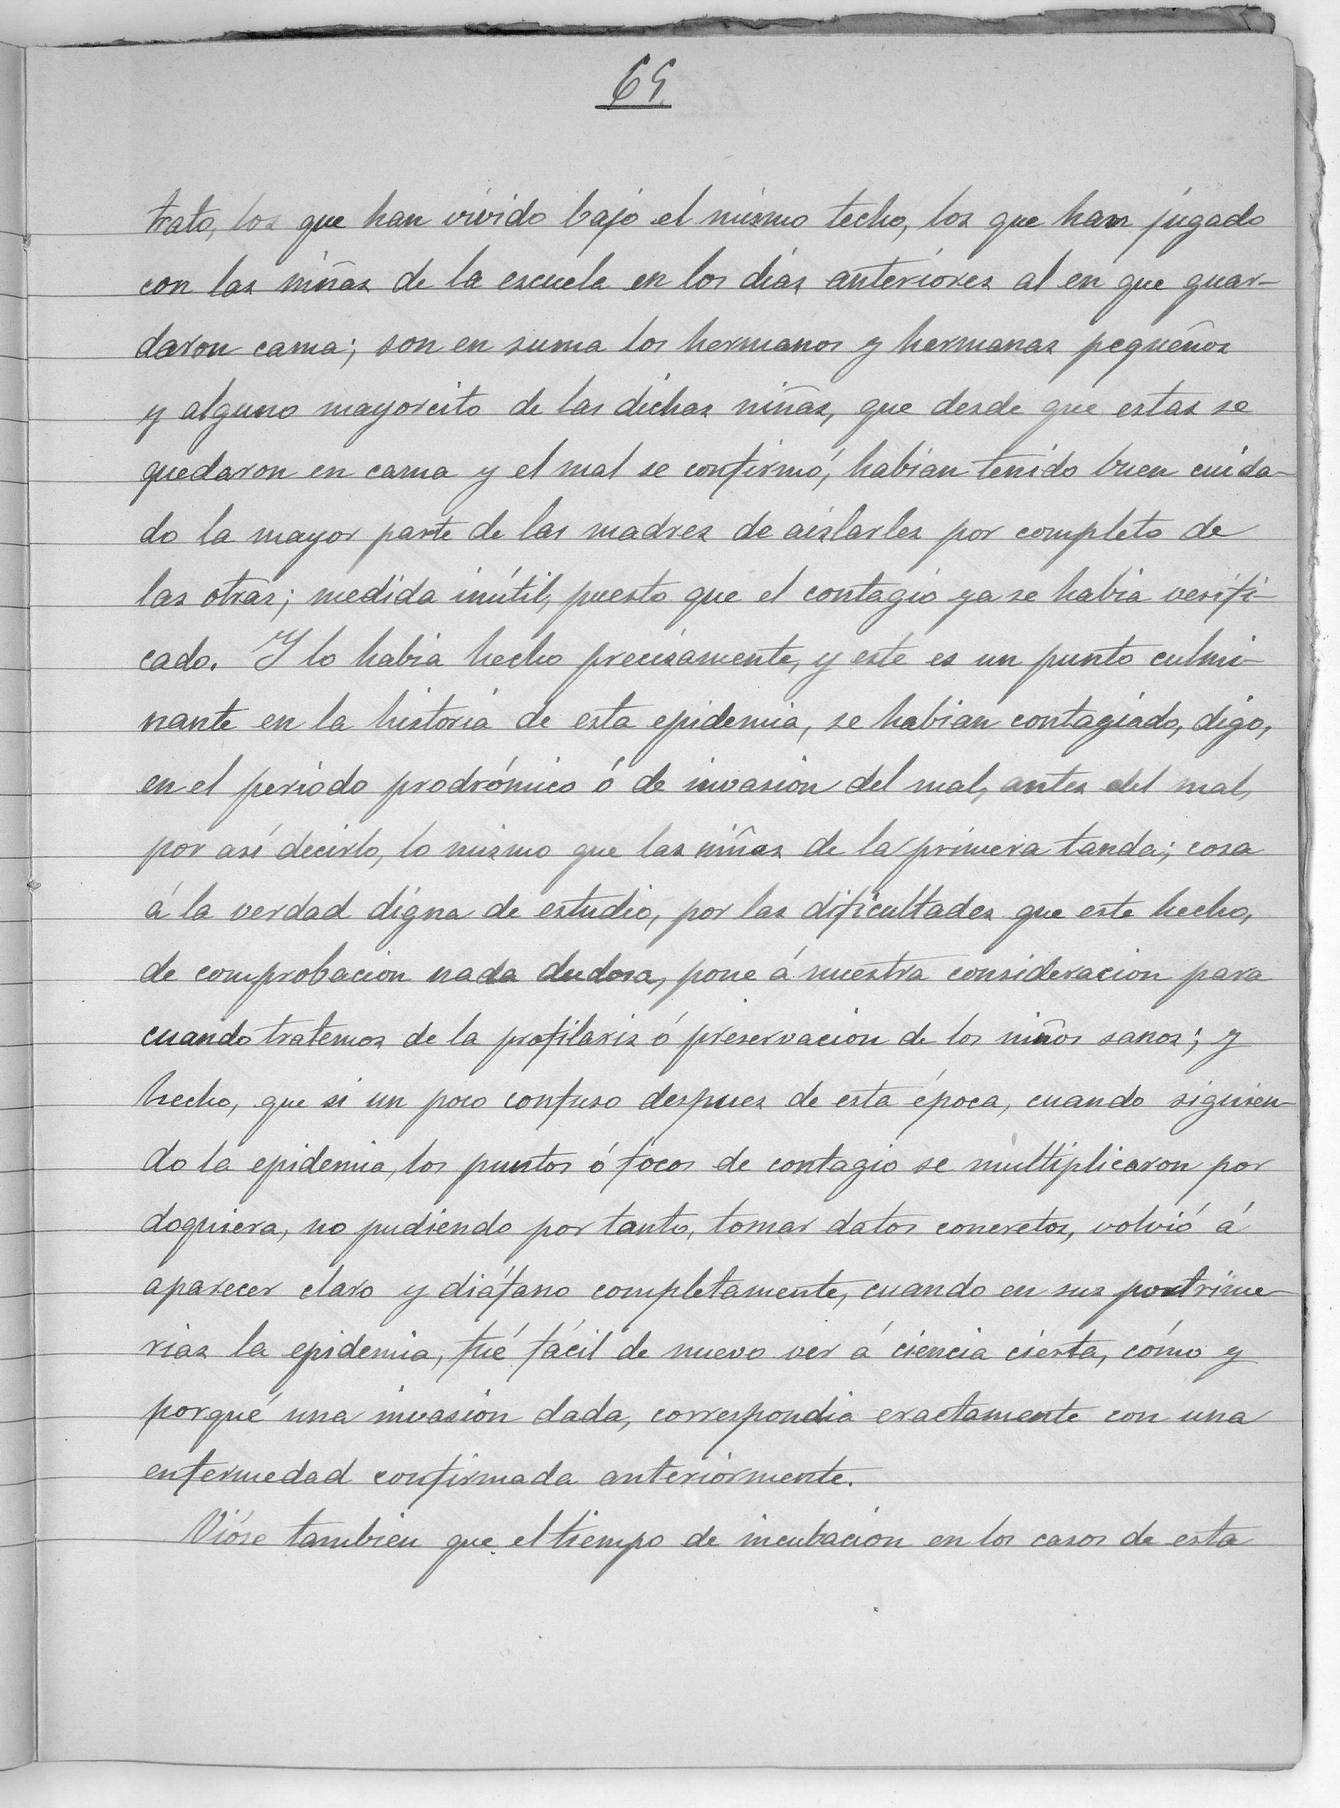 65
trato, los que han vivido bajo el mismo techo, los que han jugado
con las niñas de la escuela en los dias anteriores al en que guar-
daron cama; son en suma los hermanos y hermanas pequeños
y alguno mayorcito de las dichas niñas, que desde que estas se
quedaron en cama y el mal se confirmó, habian tenido buen cuida-
do la mayor parte de las madres de aislarles por completo de
las otras; medida inútil, puesto que el contagio ya se habia verifi-
cado. Y lo habia hecho precisamente, y este es un punto culmi-
nante en la historia de esta epidemia, se habian contagiado, digo,
en el periodo prodrómico ó de invasion del mal, antes del mal,
por así decirlo, lo mismo que las niñas de la primera tanda; cosa
á la verdad digna de estudio, por las dificultades que este hecho,
de comprobacion nada dudosa, pone á nuestra consideracion para
cuando tratemos de la profilaxis ó preservacion de los niños sanos; y
hecho, que si un poco confuso despues de esta época, cuando siguien-
do la epidemia, los puntos ó focos de contagio se multiplicaron por
doquiera, no pudiendo por tanto, tomar datos concretos, volvió á
aparecer claro y diáfano completamente, cuando en sus postrime-
rias la epidemia, fué fácil de nuevo ver á ciencia cierta, cómo y
porqué una invasion dada, correspondia exactamente con una
enfermedad confirmada anteriormente.
Vióse tambien que el tiempo de incubacion en los casos de esta